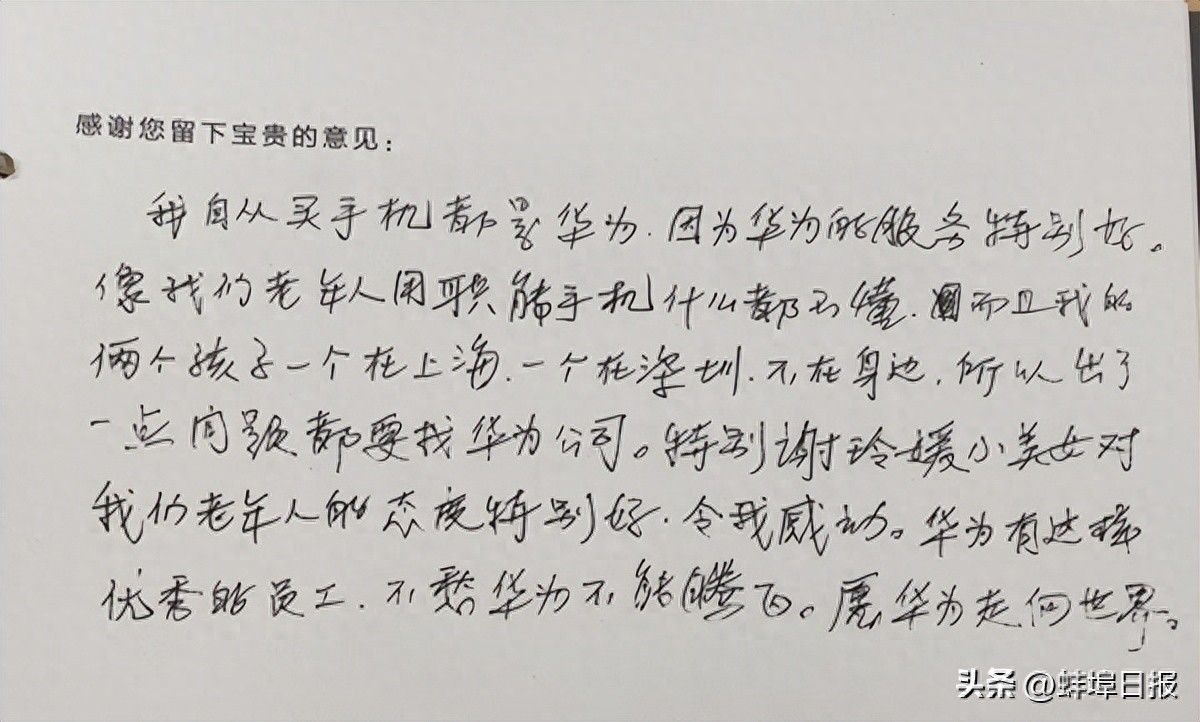 感谢您留下宝贵的意见：
我自从买手机都是华为.因为华为的服务特别好。
像我们老年人用职能手机什么都不懂.而且我的
俩个孩子一个在上海.一个在深圳.不在身边,所以出了
一点问题都要找华为公司。特别谢玲媛小美女对
我们老年人的态度特别好.令我感动。华为有这样
优秀的员工.不愁华为不能腾飞。愿华为走向世界。
头条 @蚌埠日报